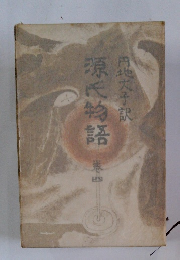 円地文子訳
源氏物語
巻四